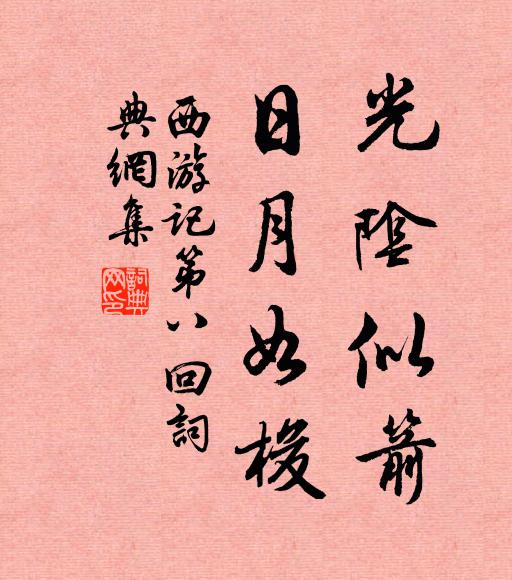 光陰似箭
日月如梭
西游记第八回詞
典網集
詞典
网印